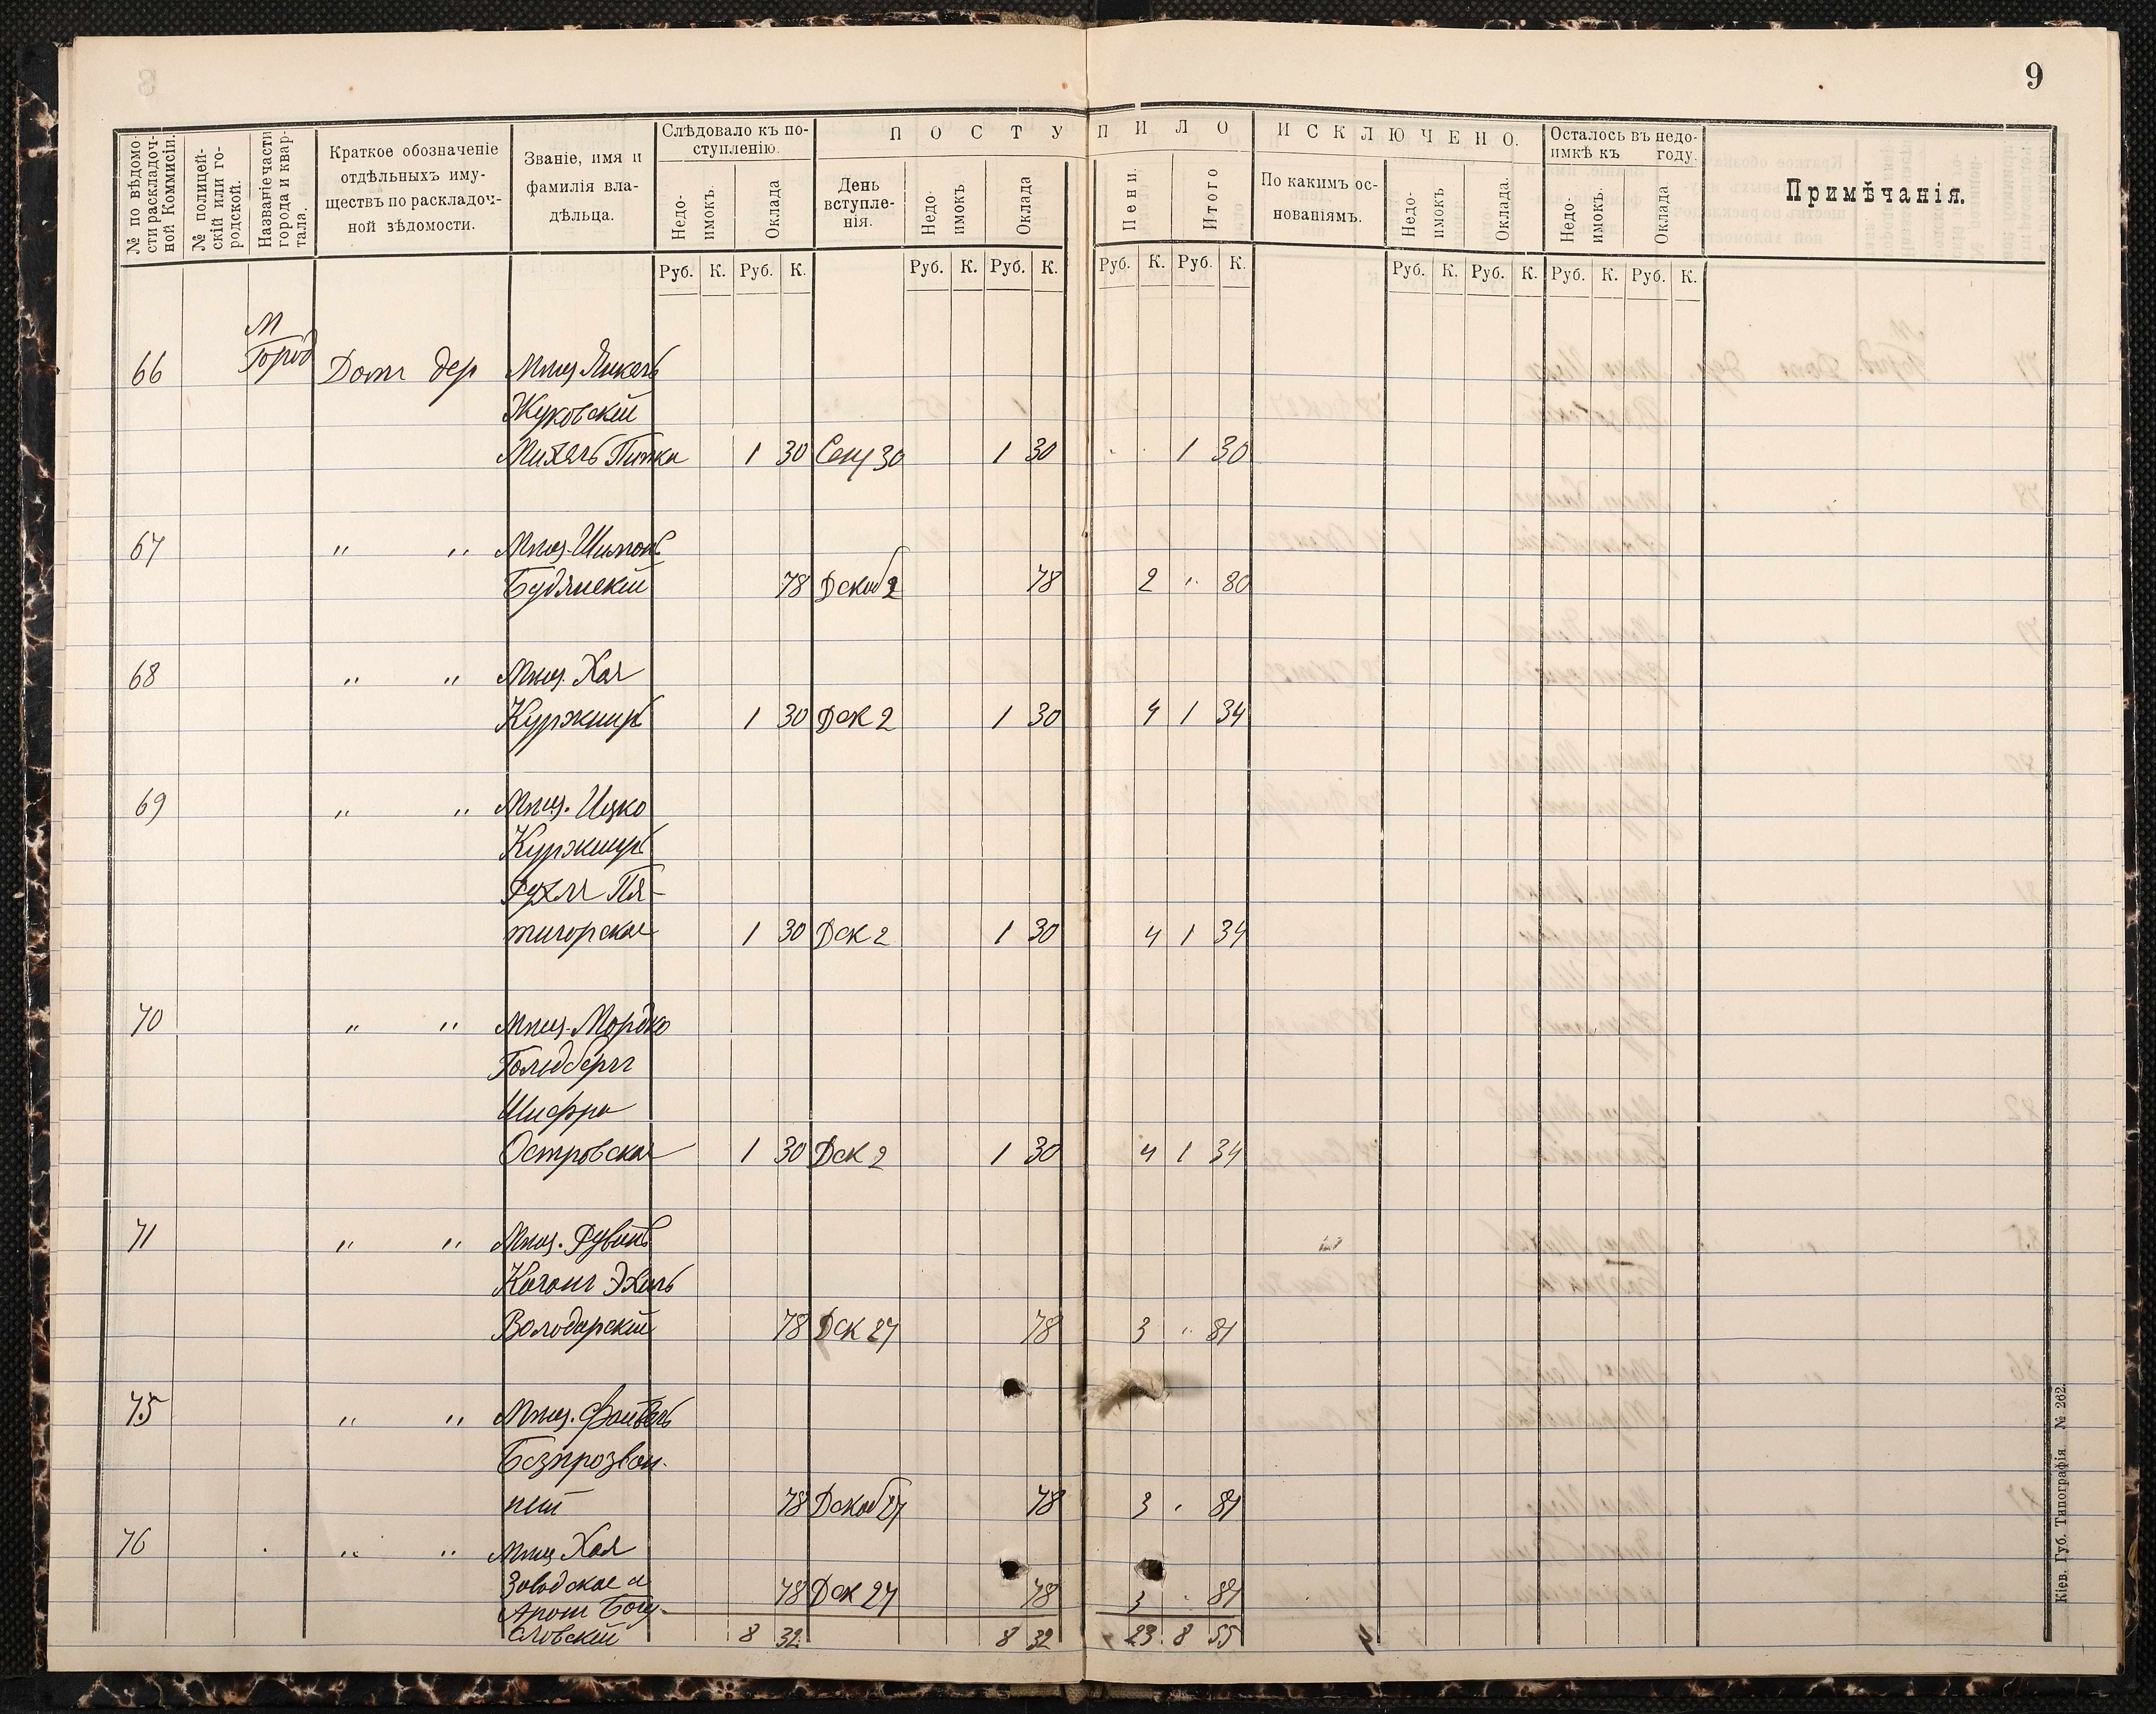 9
№ по вѣдомости раскладочной Коммисіи.
№ полицейскій или городской.
Названіе части города и квартала.
Краткое обозначеніе отдѣльныхъ имуществъ по раскладочной вѣдомости.
Званіе, имя и фамилія владѣльца.
Слѣдовало къ поступленію.
Недоимокъ. Оклада
ПОСТУПИЛО
День вступленія.
Недоимокъ. Оклада Пени. Итого
ИСКЛЮЧЕНО.
По какимъ основаніямъ.
Недоимокъ Оклада.
Осталось въ недоимкѣ къ году.
Недоимокъ. Оклада.
Примѣчанія.
Руб. К. Руб. К. Руб. К. Руб. К. Руб. К. Руб. К. Руб. К. Руб. К. Руб. К. Руб. К.
М
Город
66 Домъ дер Мѣщ
Жуковскій
1 30 30 1 30 1 30
67 " " Мѣщ. Шимонъ
Будянскій 78 Декаб 2 78 2 " 80
68 " " Мѣщ. Хая
Куржнеръ 1 30 Дек 2 1 30 4 1 34
69 " " Мѣщ. Ицко
Куржнеръ
Рухля Пя-
тигорская 1 30 Дек 2 1 30 4 1 34
70 " " Мѣщ. Мордко
Гольдбергъ
Шифра
Островская 1 30 Дек 2 1 30 4 1 34
71 " " Мѣщ. Рувинъ
Коганъ
Володарскій 78 Дек 27 78 3 " 81
75 " " Мѣщ. Файвель
Безпрозван-
ный 78 Декаб 27 78 3 " 81
76 " " Мѣщ Хая
Заводская и 78 Дек 27 78 3 " 81
Аронъ Богу-
славскій 8 32 8 32 23 8 55
Кіев. Губ. Типографія № 262.